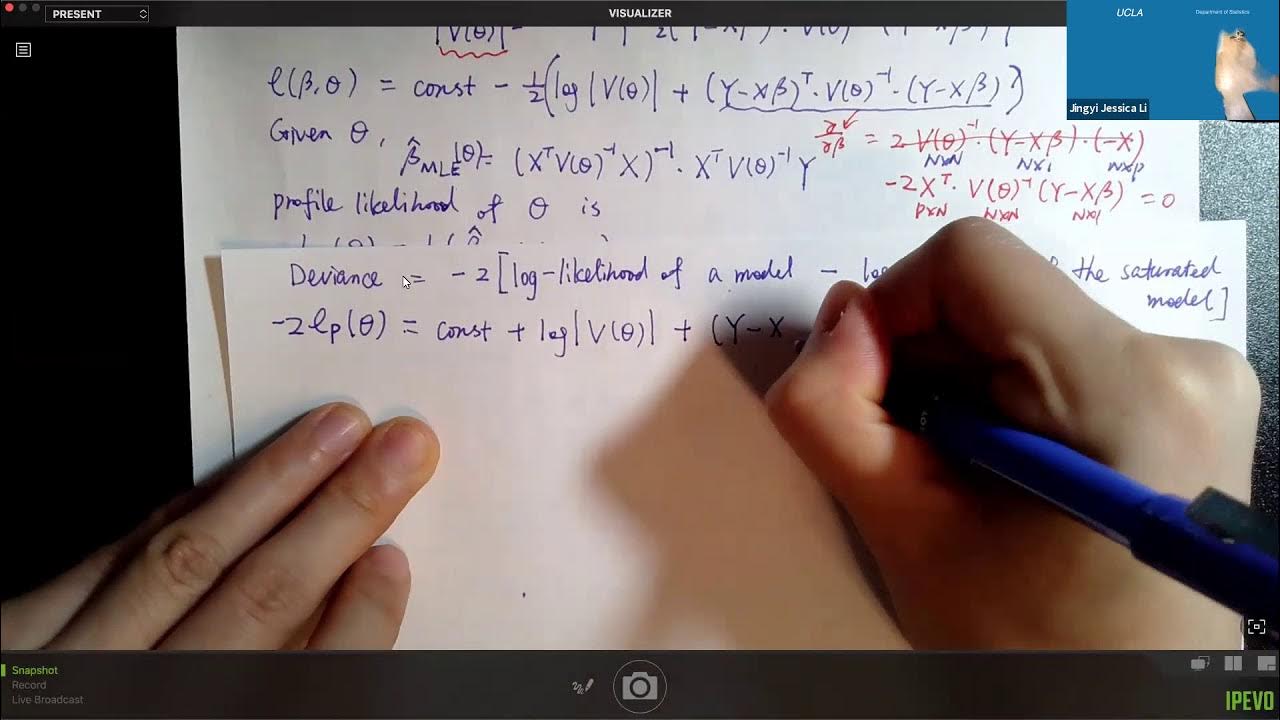 PRESENT
VISUALIZER
UCLA
Department of Statistics
Jingyi Jessica Li
|V(θ)|
ℓ(β,θ) = const - 1/2(log|V(θ)| + (Y-Xβ)ᵀ·V(θ)⁻¹·(Y-Xβ))
Given θ,
β̂_MLE(θ) = (XᵀV(θ)⁻¹X)⁻¹·XᵀV(θ)⁻¹Y
∂/∂β = 2 V(θ)⁻¹·(Y-Xβ)·(-X)
N×N N×1 N×p
-2Xᵀ·V(θ)⁻¹(Y-Xβ) = 0
p×N N×N N×1
profile likelihood of θ is
Deviance = -2[log-likelihood of a model - the saturated
model]
-2ℓp(θ) = const + log|V(θ)| + (Y-X
Snapshot
Record
Live Broadcast
IPEVO